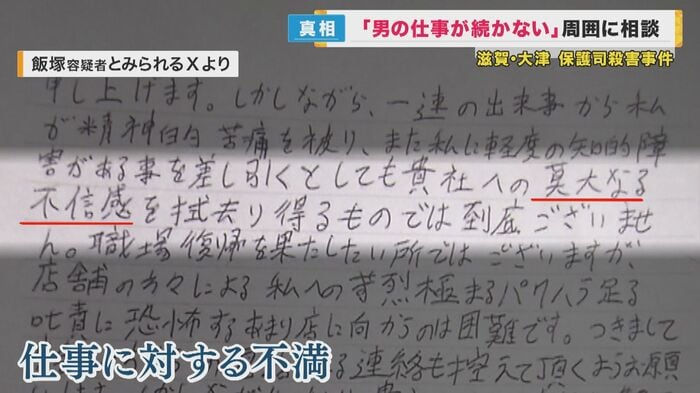 真相
「男の仕事が続かない」周囲に相談
滋賀・大津 保護司殺害事件
飯塚容疑者とみられるXより
申し上げます。しかしながら、一連の出来事から私
が精神的苦痛を被り、また私に軽度の知的障
害がある事を差し引くとしても貴社への莫大なる
不信感を拭去り得るものでは到底ございませ
ん。職場復帰を果たしたい所ではございますが、
店舗の方々による私への苛烈極まるパワハラ足る
叱責に恐怖するあまり店に向かうのは困難です。つきまして
連絡も控えて頂くようお願
仕事に対する不満